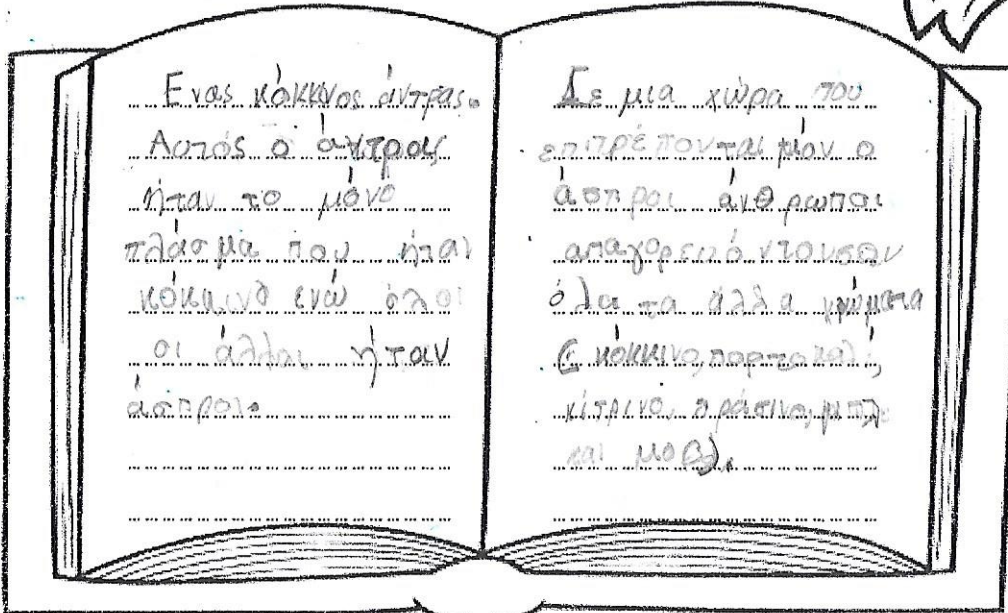 Ενας κόκκινος άντρας.
Αυτός ο άντρας
ήταν το μόνο
πλάσμα που ήταν
κόκκινο ενώ όλοι
οι άλλοι ήταν
άσπροι.
Σε μια χώρα που
επιτρέπονται μόνο
άσπροι άνθρωποι
απαγορευόντουσαν
όλα τα άλλα χρώματα
( κόκκινο, πορτοκαλί,
κίτρινο, πράσινο, μπλε
και μοβ).